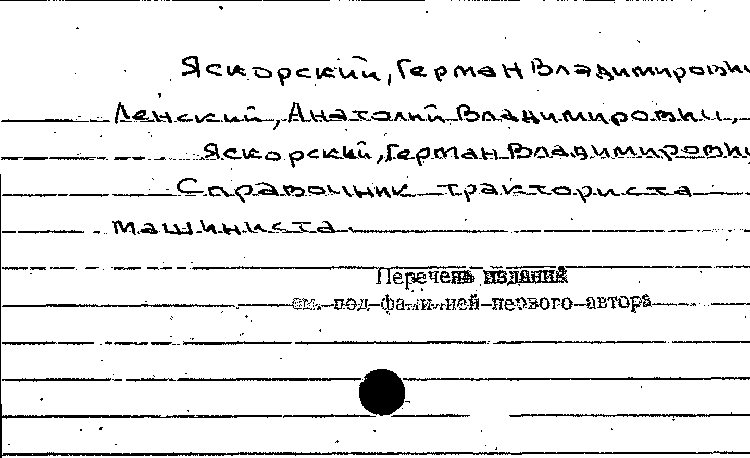 Яскорский, Герман Владимирови
Ленский, Анатолий Владимирович,
Яскорский, Герман Владимирови
Справочник тракториста
машиниста.
Перечень изданий
см. под фамилией первого автора